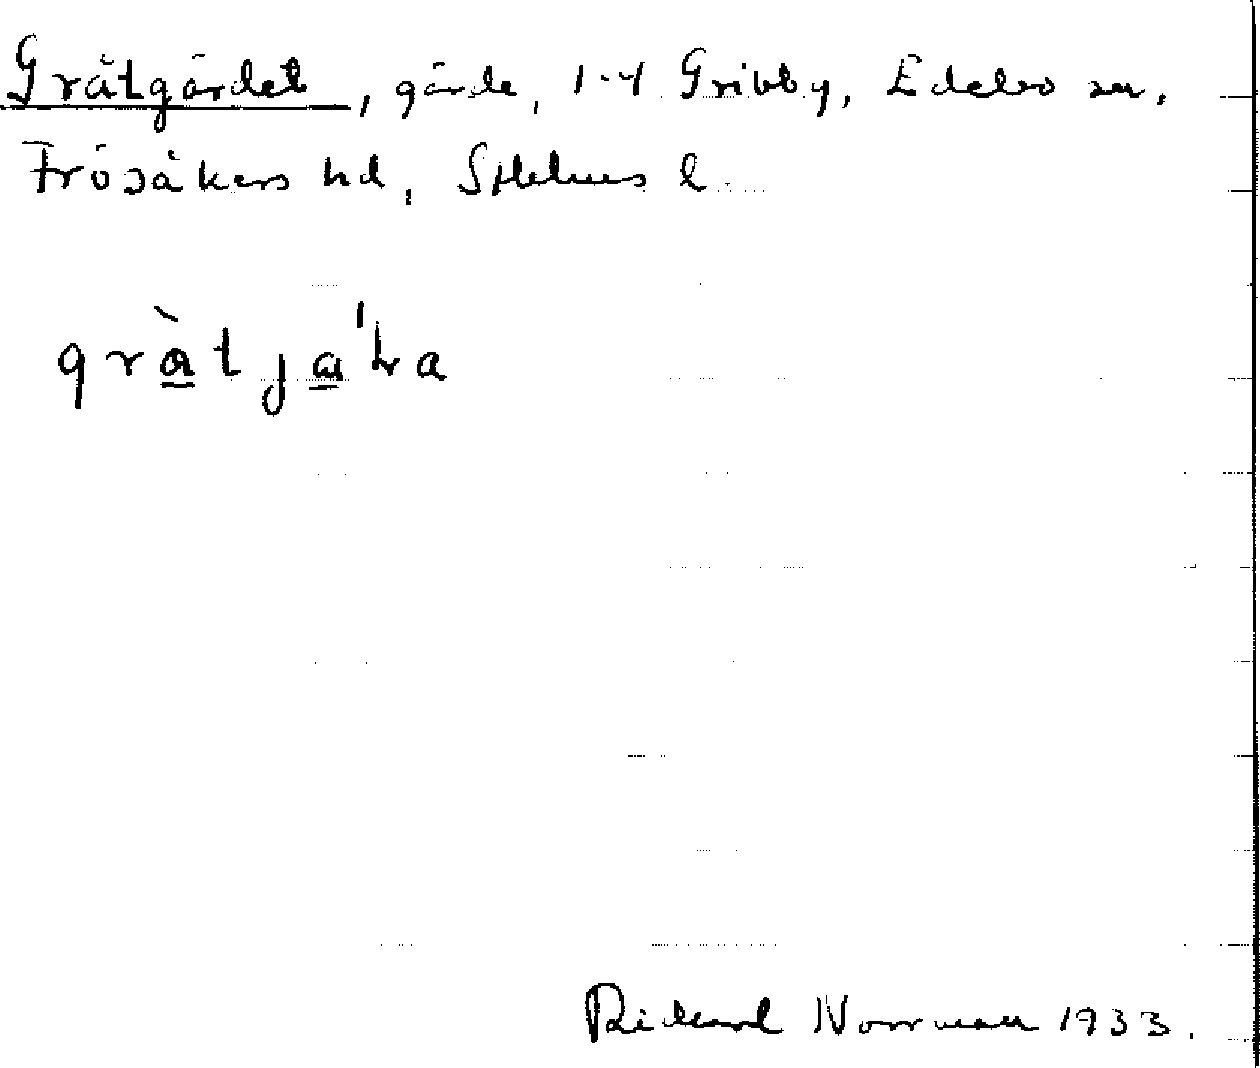 Gråtgärdet, gärde, 1-4 Gribby, Edebo sn,
Frösåkers hd, Sthlms l.
Rickard Norrman 1933.